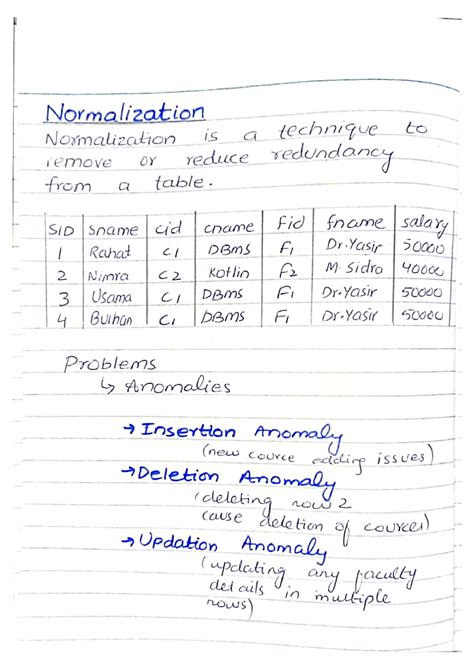 Normalization
Normalization is a technique to
remove or reduce redundancy
from a table.
SID Sname cid cname Fid fname salary
1 Rahat C1 DBMS F1 Dr.Yasir 50000
2 Nimra C2 Kotlin F2 M. Sidro 40000
3 Usama C1 DBMS F1 Dr.Yasir 50000
4 Burhan C1 DBMS F1 Dr.Yasir 50000
Problems
↳ Anomalies
→ Insertion Anomaly
(new cource adding issues)
→ Deletion Anomaly
(deleting row 2
cause deletion of cource)
→ Updation Anomaly
(updating any faculty
details in multiple
rows)